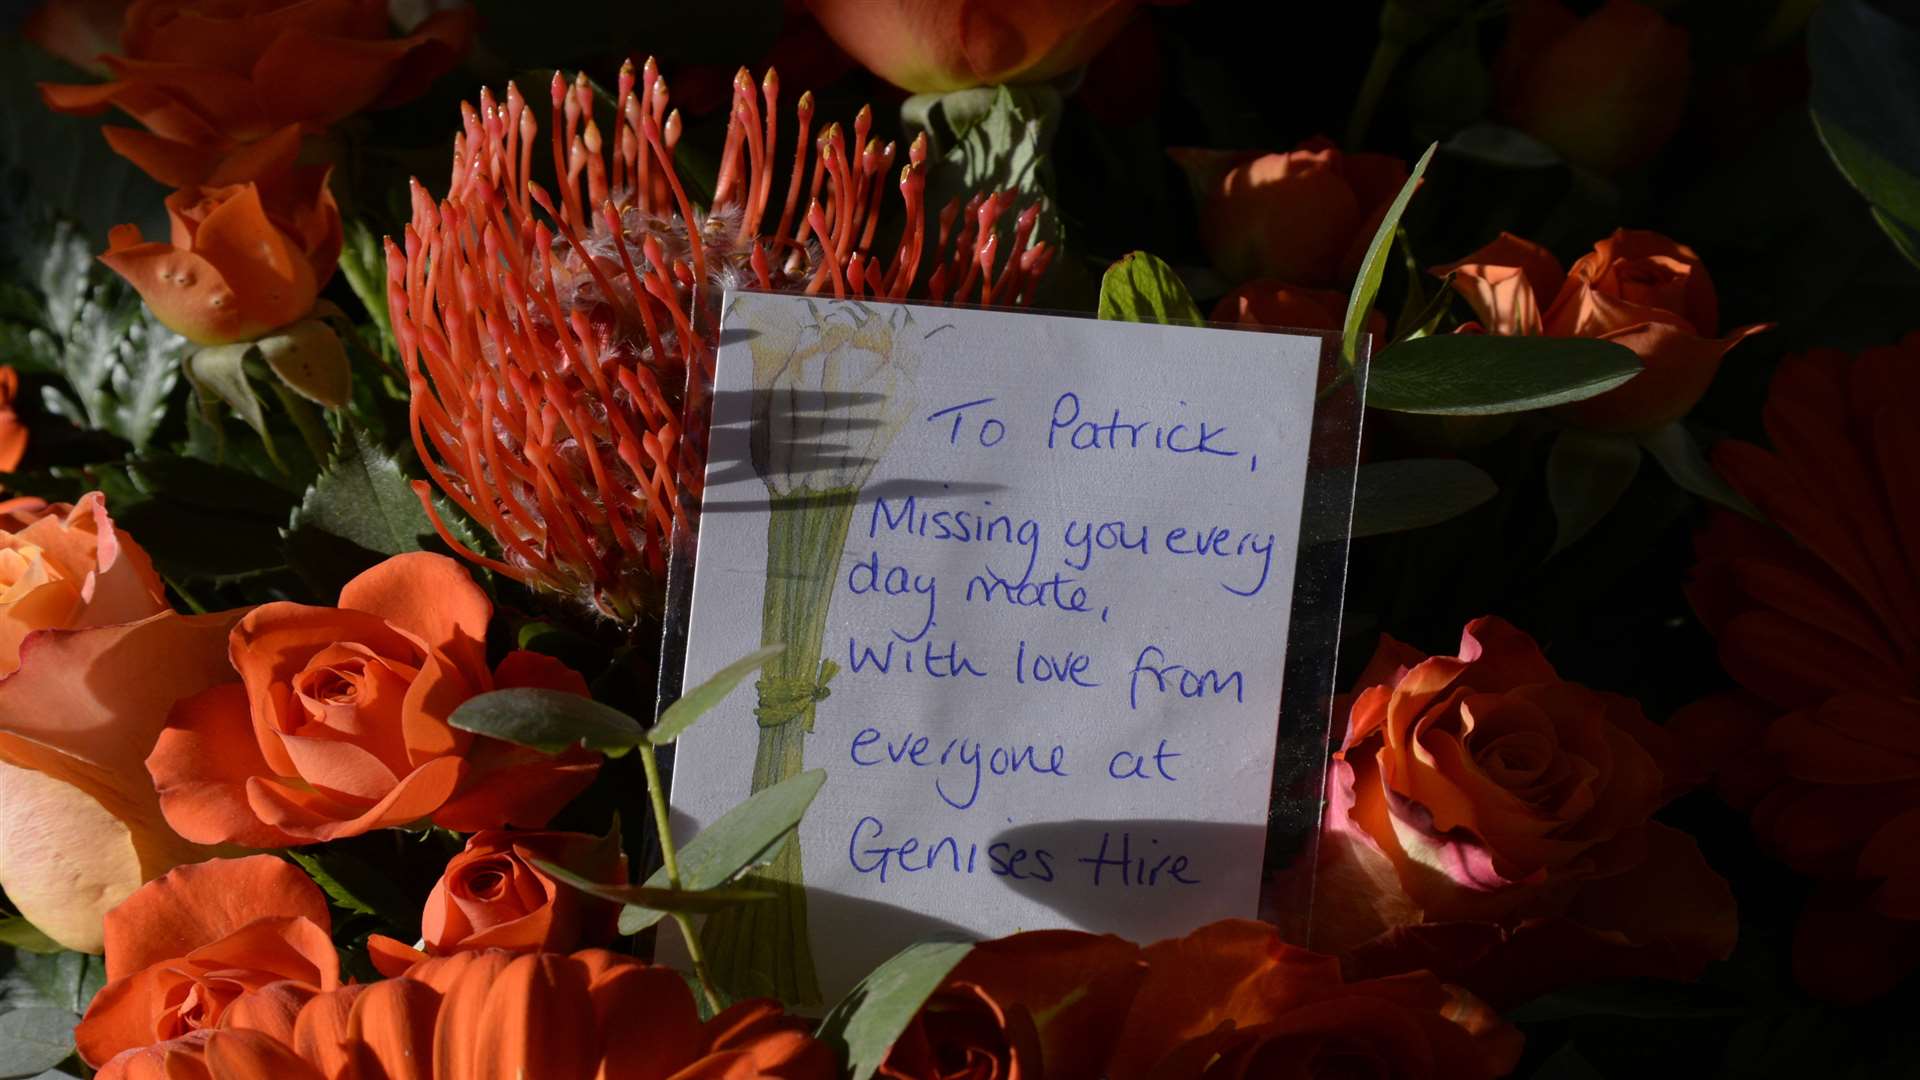 To Patrick,
Missing you every
day mate,
With love from
everyone at
Genises Hire